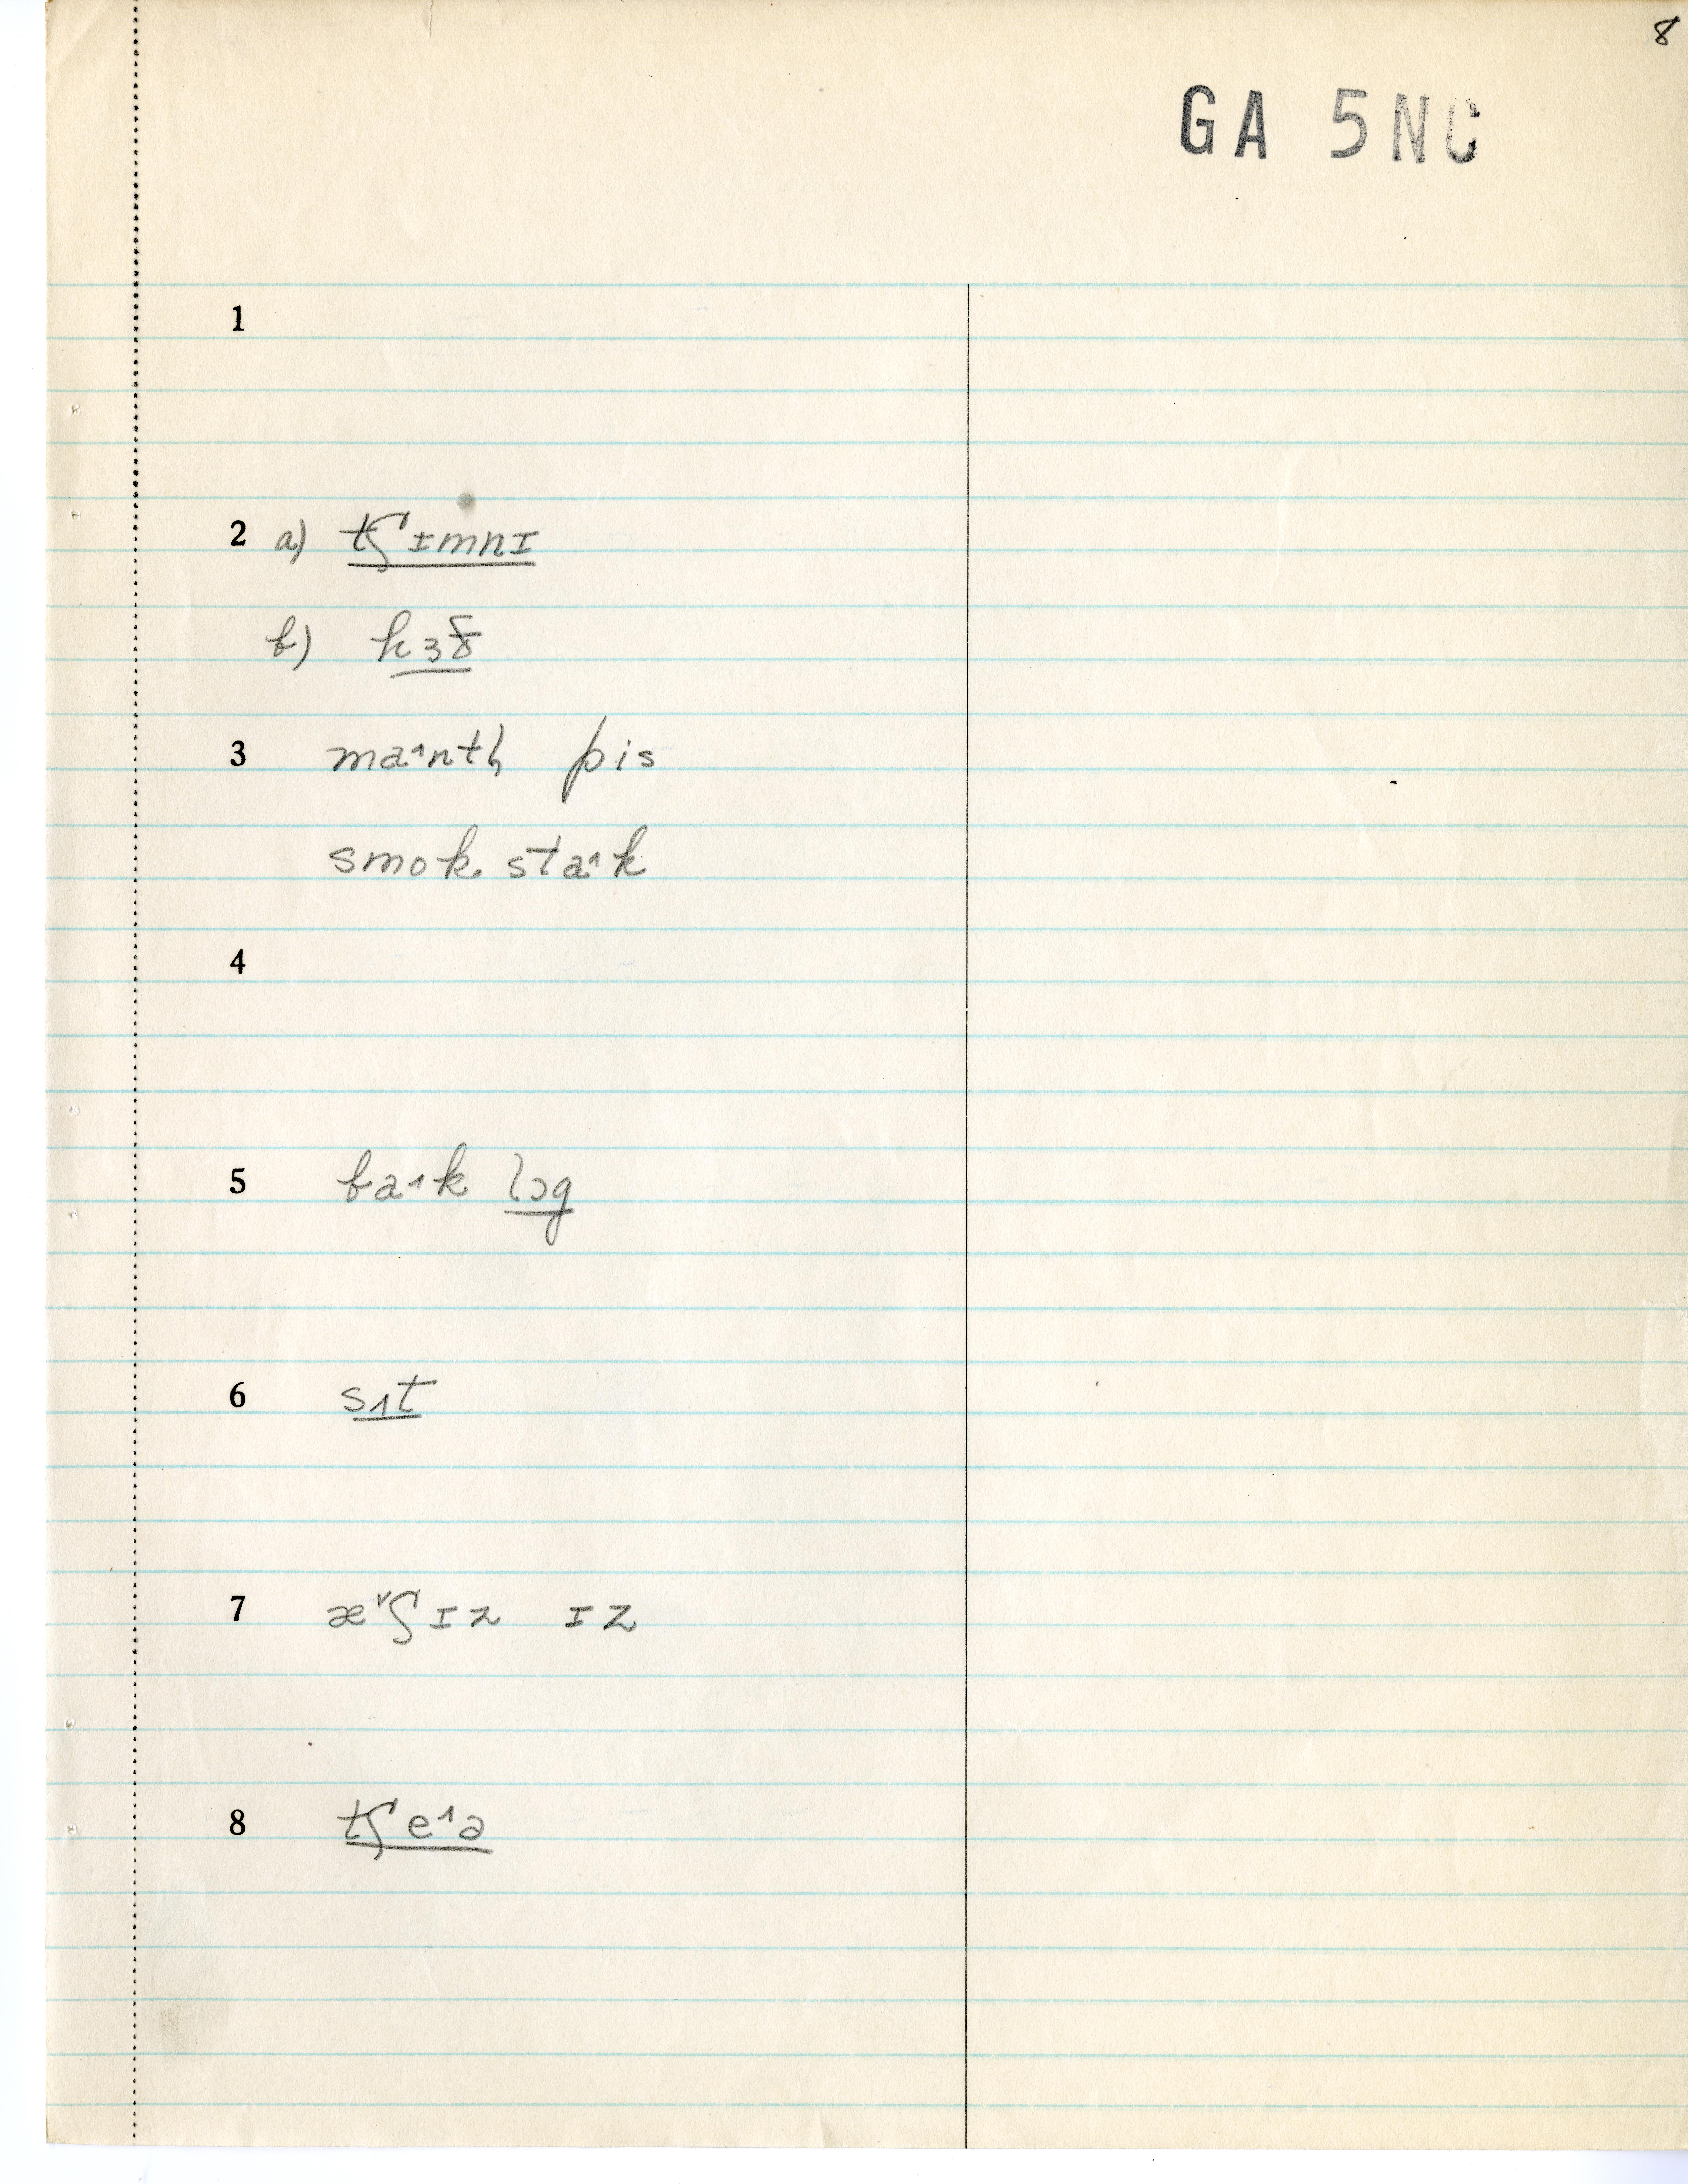 8
GA 5NC
1
2 a) tʃɪmnɪ
b) hɜθ
3 ma˄ntḷ pis
smok sta˄k
4
5 ba˄k lɔg
6 sʌt
7 æ˅ʃɪz ɪz
8 tʃe˄ə